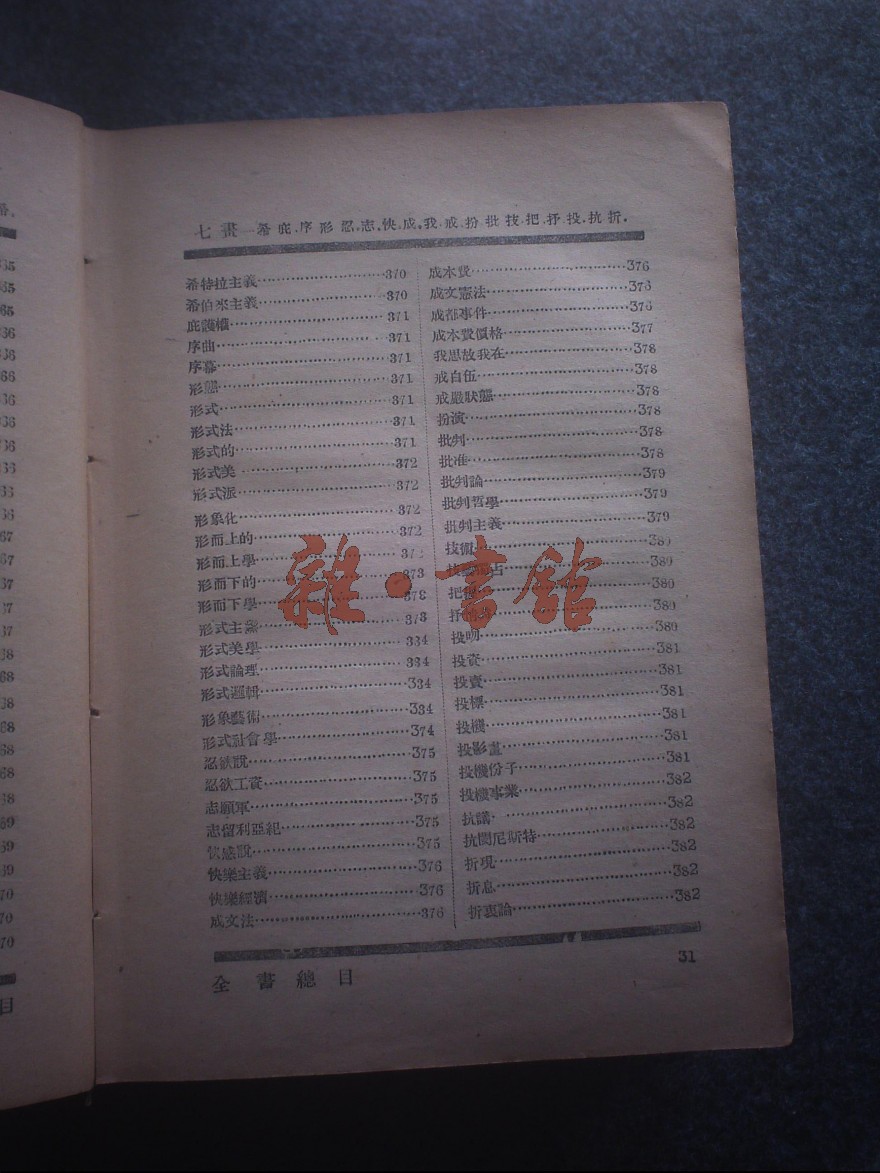 七畫—希庇序形忍志快成我戒扮批技把抒投抗折
希特拉主義 370
希伯來主義 370
庇護權 371
序曲 371
序幕 371
形態 371
形式 371
形式法 371
形式的 371
形式美 372
形式派 372
形象化 372
形而上的 372
形而上學 372
形而下的 373
形而下學 373
形式主義 373
形式美學 334
形式論理 334
形式邏輯 334
形象藝術 334
形式社會學 374
忍欲說 375
忍欲工資 375
志願軍 375
志留利亞紀 375
快感說 375
快樂主義 376
快樂經濟 376
成文法 376
成本費 376
成文憲法 376
成都事件 376
成本費價格 377
我思故我在 378
戒自伍 378
戒嚴狀態 378
扮演 378
批判 378
批准 378
批判論 379
批判哲學 379
批判主義 379
技術 380
380
把 380
抒 380
投明 380
投資 381
投賣 381
投標 381
投機 381
投影畫 381
投機份子 381
投機事業 382
抗議 382
抗閔尼斯特 382
折現 382
折息 382
折衷論 382
全書總目
31
雜·書館
65
65
65
66
66
66
66
66
66
66
66
67
67
67
67
67
68
68
68
68
68
68
68
69
69
69
70
70
70
目